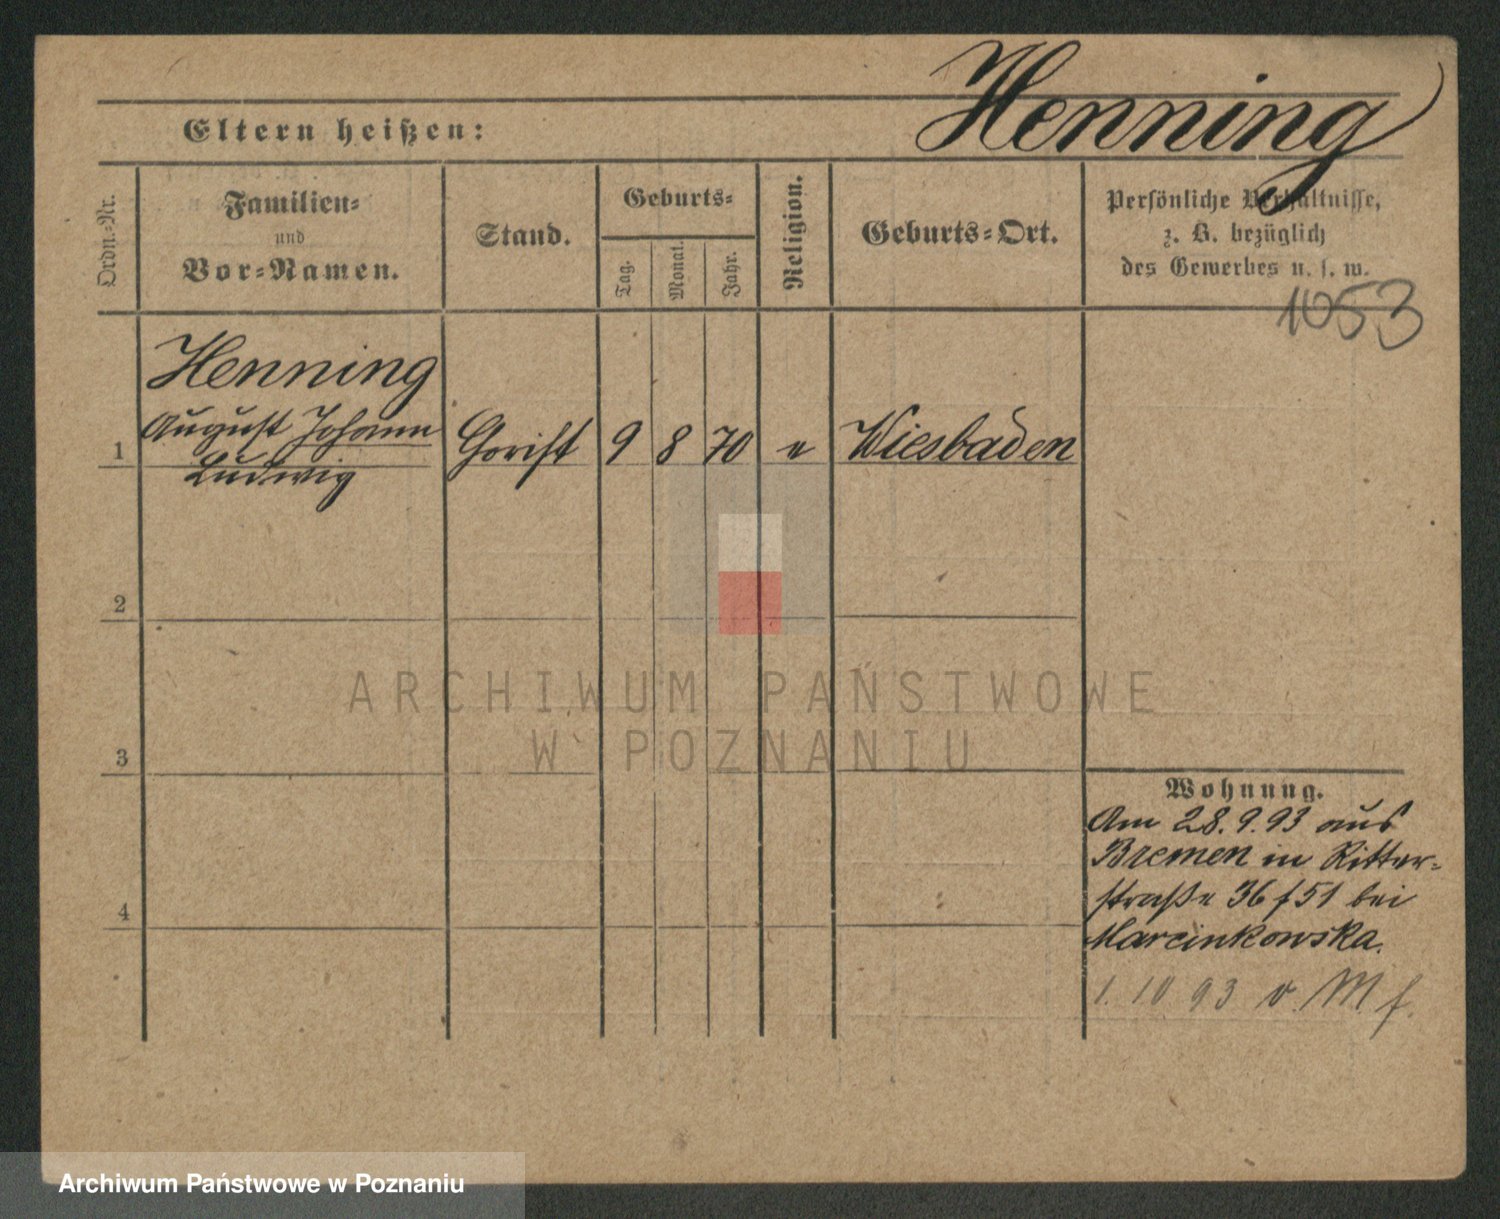 Henning
Eltern heißen:
Ordn.-Nr.
Familien-
und
Vor-Namen.
Stand.
Geburts-
Tag.
Monat.
Jahr.
Religion.
Geburts-Ort.
Persönliche Verhältnisse,
z. B. bezüglich
des Gewerbes u. s. w.
1053
Henning
August Johann
Ludwig
1
9
8
70
e
Wiesbaden
2
3
4
Wohnung.
Am 28.9.93 aus
Bremen in Ritter-
straße 36 f 51 bei
Marcinkowska.
1. 10 93 v. M f.
ARCHIWUM PAŃSTWOWE
W POZNANIU
Archiwum Państwowe w Poznaniu